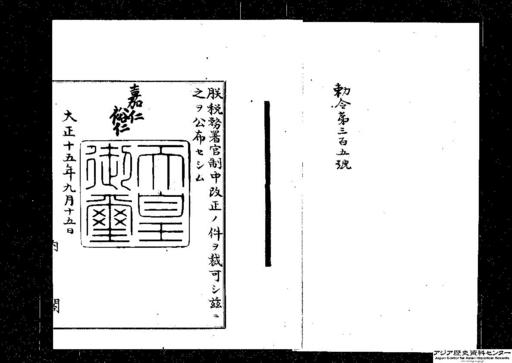 勅令第三百五號
朕税務署官制中改正ノ件ヲ裁可シ茲ニ
之ヲ公布セシム
嘉仁
裕仁
天皇
御璽
大正十五年九月十五日
内閣
アジア歴史資料センター
Japan Center for Asian Historical Records